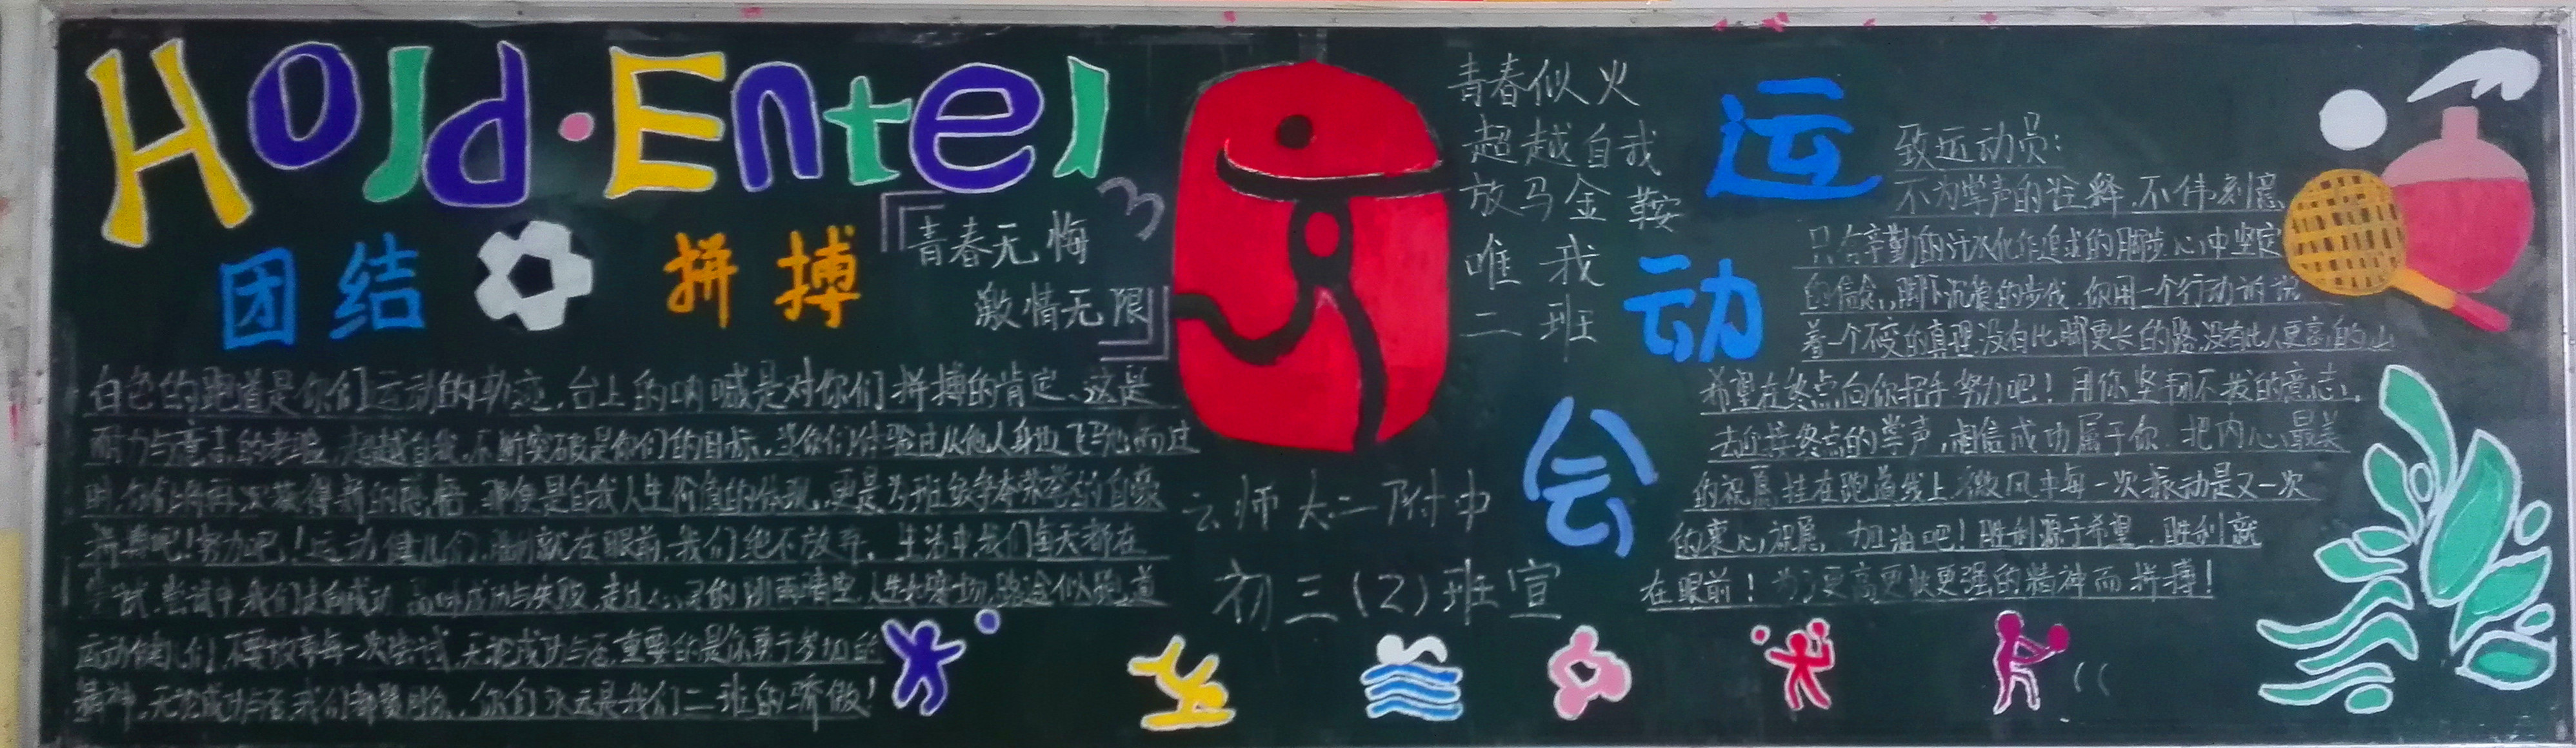 Hold·Enter
团结 拼搏
『青春无悔
激情无限』
白色的跑道是你们运动的轨迹,台上的呐喊是对你们拼搏的肯定、这是
耐力与意志的考验,超越自我,不断突破是你们的目标,当你们体验过从他人身边飞驰而过
时,你们将再次获得新的感悟,那便是自我人生价值的体现,更是为班级争夺荣誉的自豪
拼搏吧!努力吧!运动健儿们,胜利就在眼前,我们绝不放弃。生活中我们每天都在
尝试,尝试中,我们走向成功 品味成功与失败,走过心灵的阴雨晴空,人生如赛场,路途似跑道
运动健儿们!不要放弃每一次尝试,无论成功与否,重要的是你勇于参加的
精神,无论成功与否,我们都赞同你,你们永远是我们二班的骄傲!
青春似火
超越自我
放马金鞍
唯我
二班
云师大二附中
初三(2)班宣
运动会
致运动员:
不为掌声的注释,不伟刻意
只有辛勤的汗水化作追求的脚步,心中坚定
的信念,脚下沉稳的步伐,你用一个行动诉说
着一个不变的真理:没有比脚更长的路,没有比人更高的山
希望在终点向你招手,努力吧!用你坚韧不拔的意志,
去迎接终点的掌声,相信成功属于你 把内心最美
的祝愿挂在跑道线上,微风中每一次振动是又一次
的衷心祝愿,加油吧!胜利源于希望,胜利就
在眼前!为了更高更快更强的精神而拼搏!